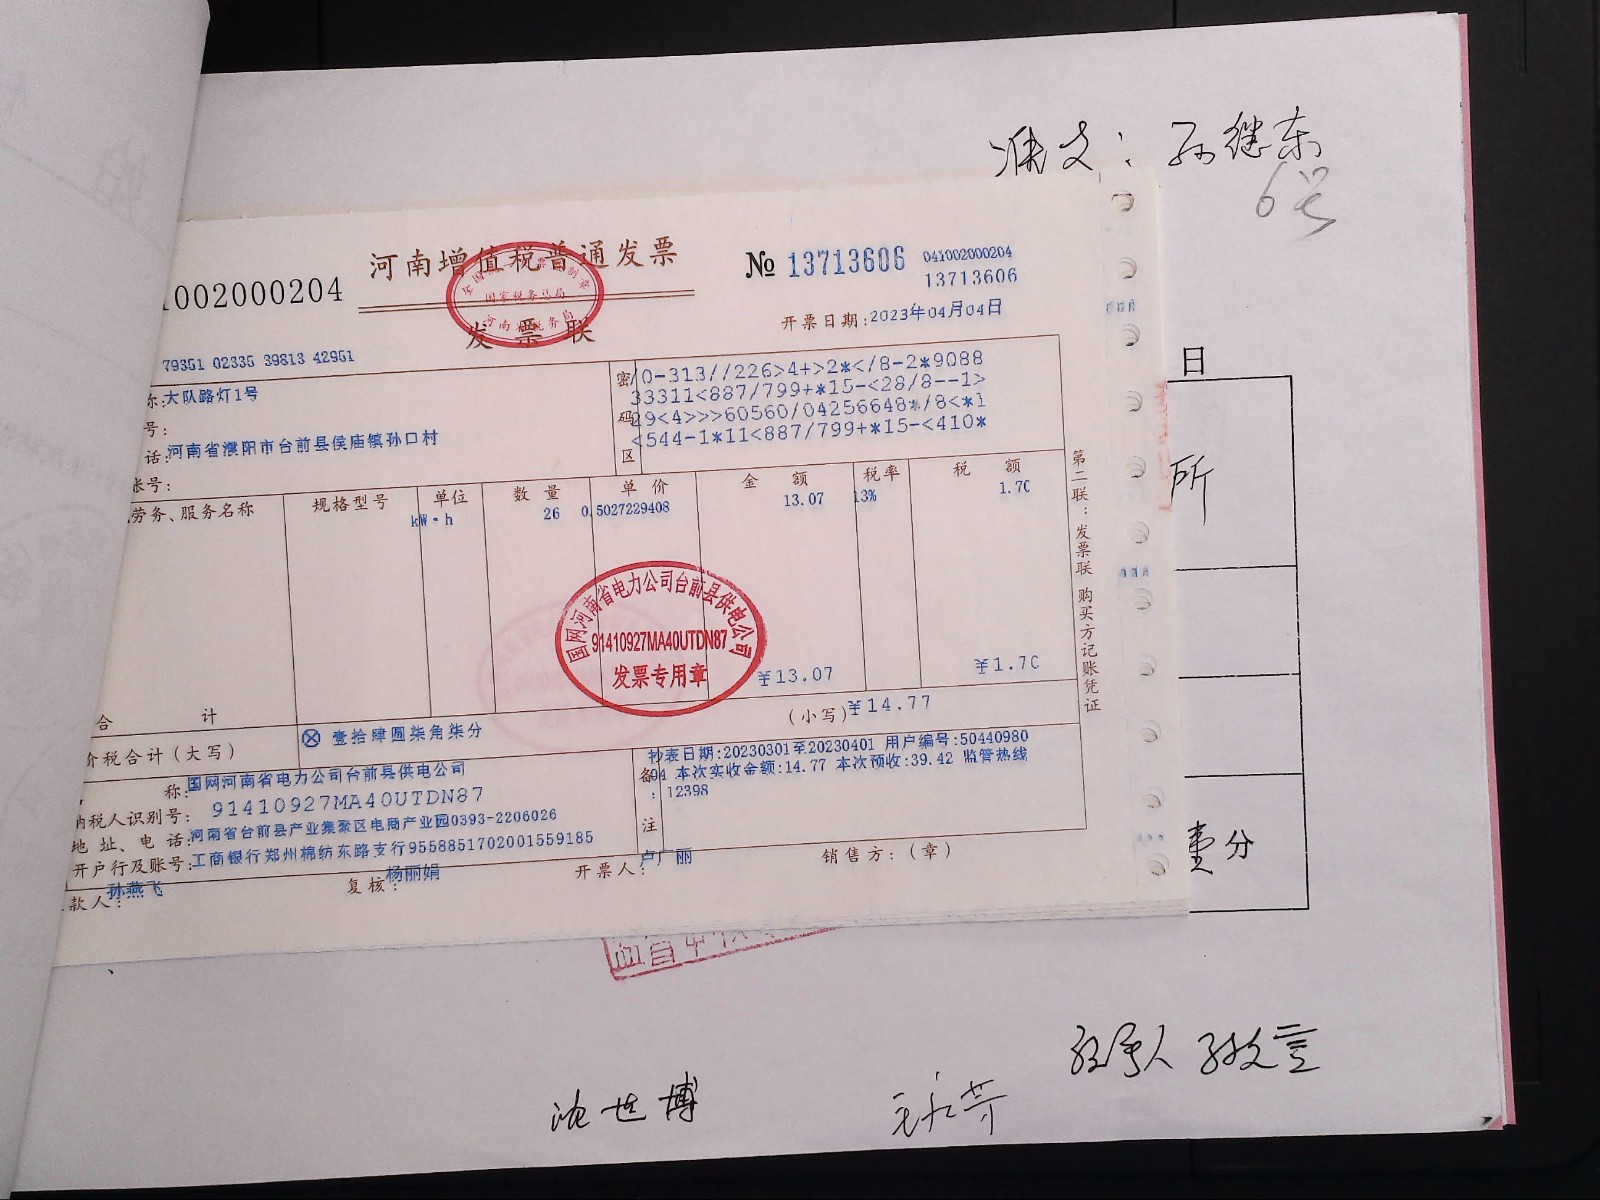 准支：孙继东
6号
河南增值税普通发票
1002000204
№ 13713606
041002000204
13713606
国家税务总局
发票联
开票日期:2023年04月04日
79351 02335 39813 42951
称:大队路灯1号
号:
话:河南省濮阳市台前县侯庙镇孙口村
账号:
密码区
/0-313//226>4+>2*</8-2*9088
33311<887/799+*15-<28/8--1>
29<4>>>60560/04256648*/8<*1
<544-1*11<887/799+*15-<410*
劳务、服务名称 规格型号 单位 数量 单价 金额 税率 税额
kW·h 26 0.5027229408 13.07 13% 1.70
国网河南省电力公司台前县供电公司
91410927MA40UTDN87
发票专用章
合计 ¥13.07 ¥1.70
价税合计(大写) ⊗ 壹拾肆圆柒角柒分 (小写)¥14.77
称:国网河南省电力公司台前县供电公司
纳税人识别号: 91410927MA40UTDN87
地址、电话:河南省台前县产业集聚区电商产业园0393-2206026
开户行及账号:工商银行郑州棉纺东路支行9558851702001559185
备注
抄表日期:20230301至20230401 用户编号:50440980
04 本次实收金额:14.77 本次预收:39.42 监管热线
:12398
款人:孙燕飞 复核:杨丽娟 开票人:卢广丽 销售方:(章)
第二联:发票联 购买方记账凭证
日
所
壹分
经手人
沈世博